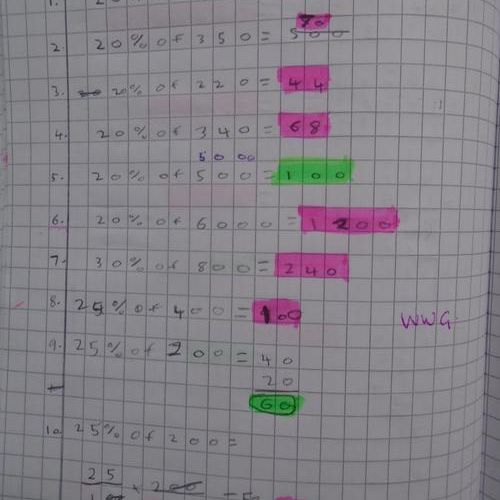 1.
70
2. 20% of 350 = 500
3. 20% of 220 = 44
4. 20% of 340 = 68
50 00
5. 20% of 500 = 100
6. 20% of 6000 = 1200
7. 30% of 800 = 240
8. 25% of 400 = 100
WWG
9. 25% of 200 = 40
20
60
10. 25% of 200 =
25 × 200 =